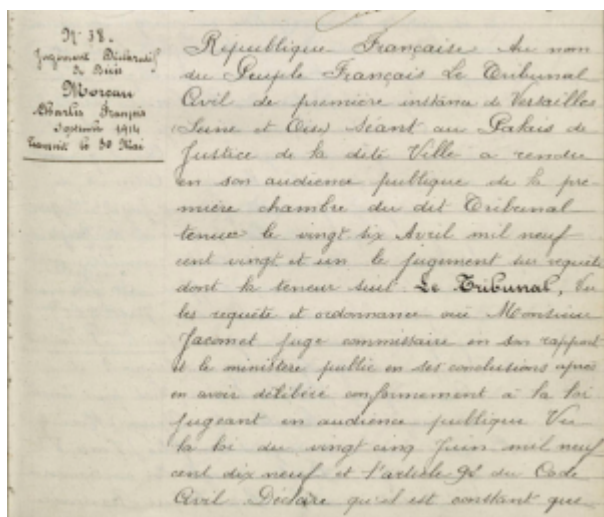 N° 38.
Jugement Déclaratif
de Décès
Moreau
Charles François
Septembre 1914
Transcrit le 30 Mai
République Française Au nom
du Peuple Français Le Tribunal
Civil de première instance de Versailles
(Seine et Oise) Séant au Palais de
Justice de la dite Ville a rendu
en son audience publique de la pre-
mière chambre du dit Tribunal
tenue le vingt six Avril mil neuf
cent vingt et un le jugement sur requête
dont la teneur suit Le Tribunal, Vu
les requête et ordonnance ouï Monsieur
Jacomet juge commissaire en son rapport
et le ministère public en ses conclusions après
en avoir délibéré conformément à la loi
jugeant en audience publique Vu
la loi du vingt cinq Juin mil neuf
cent dix neuf et l'article 92 du Code
Civil Déclare qu'il est constant que